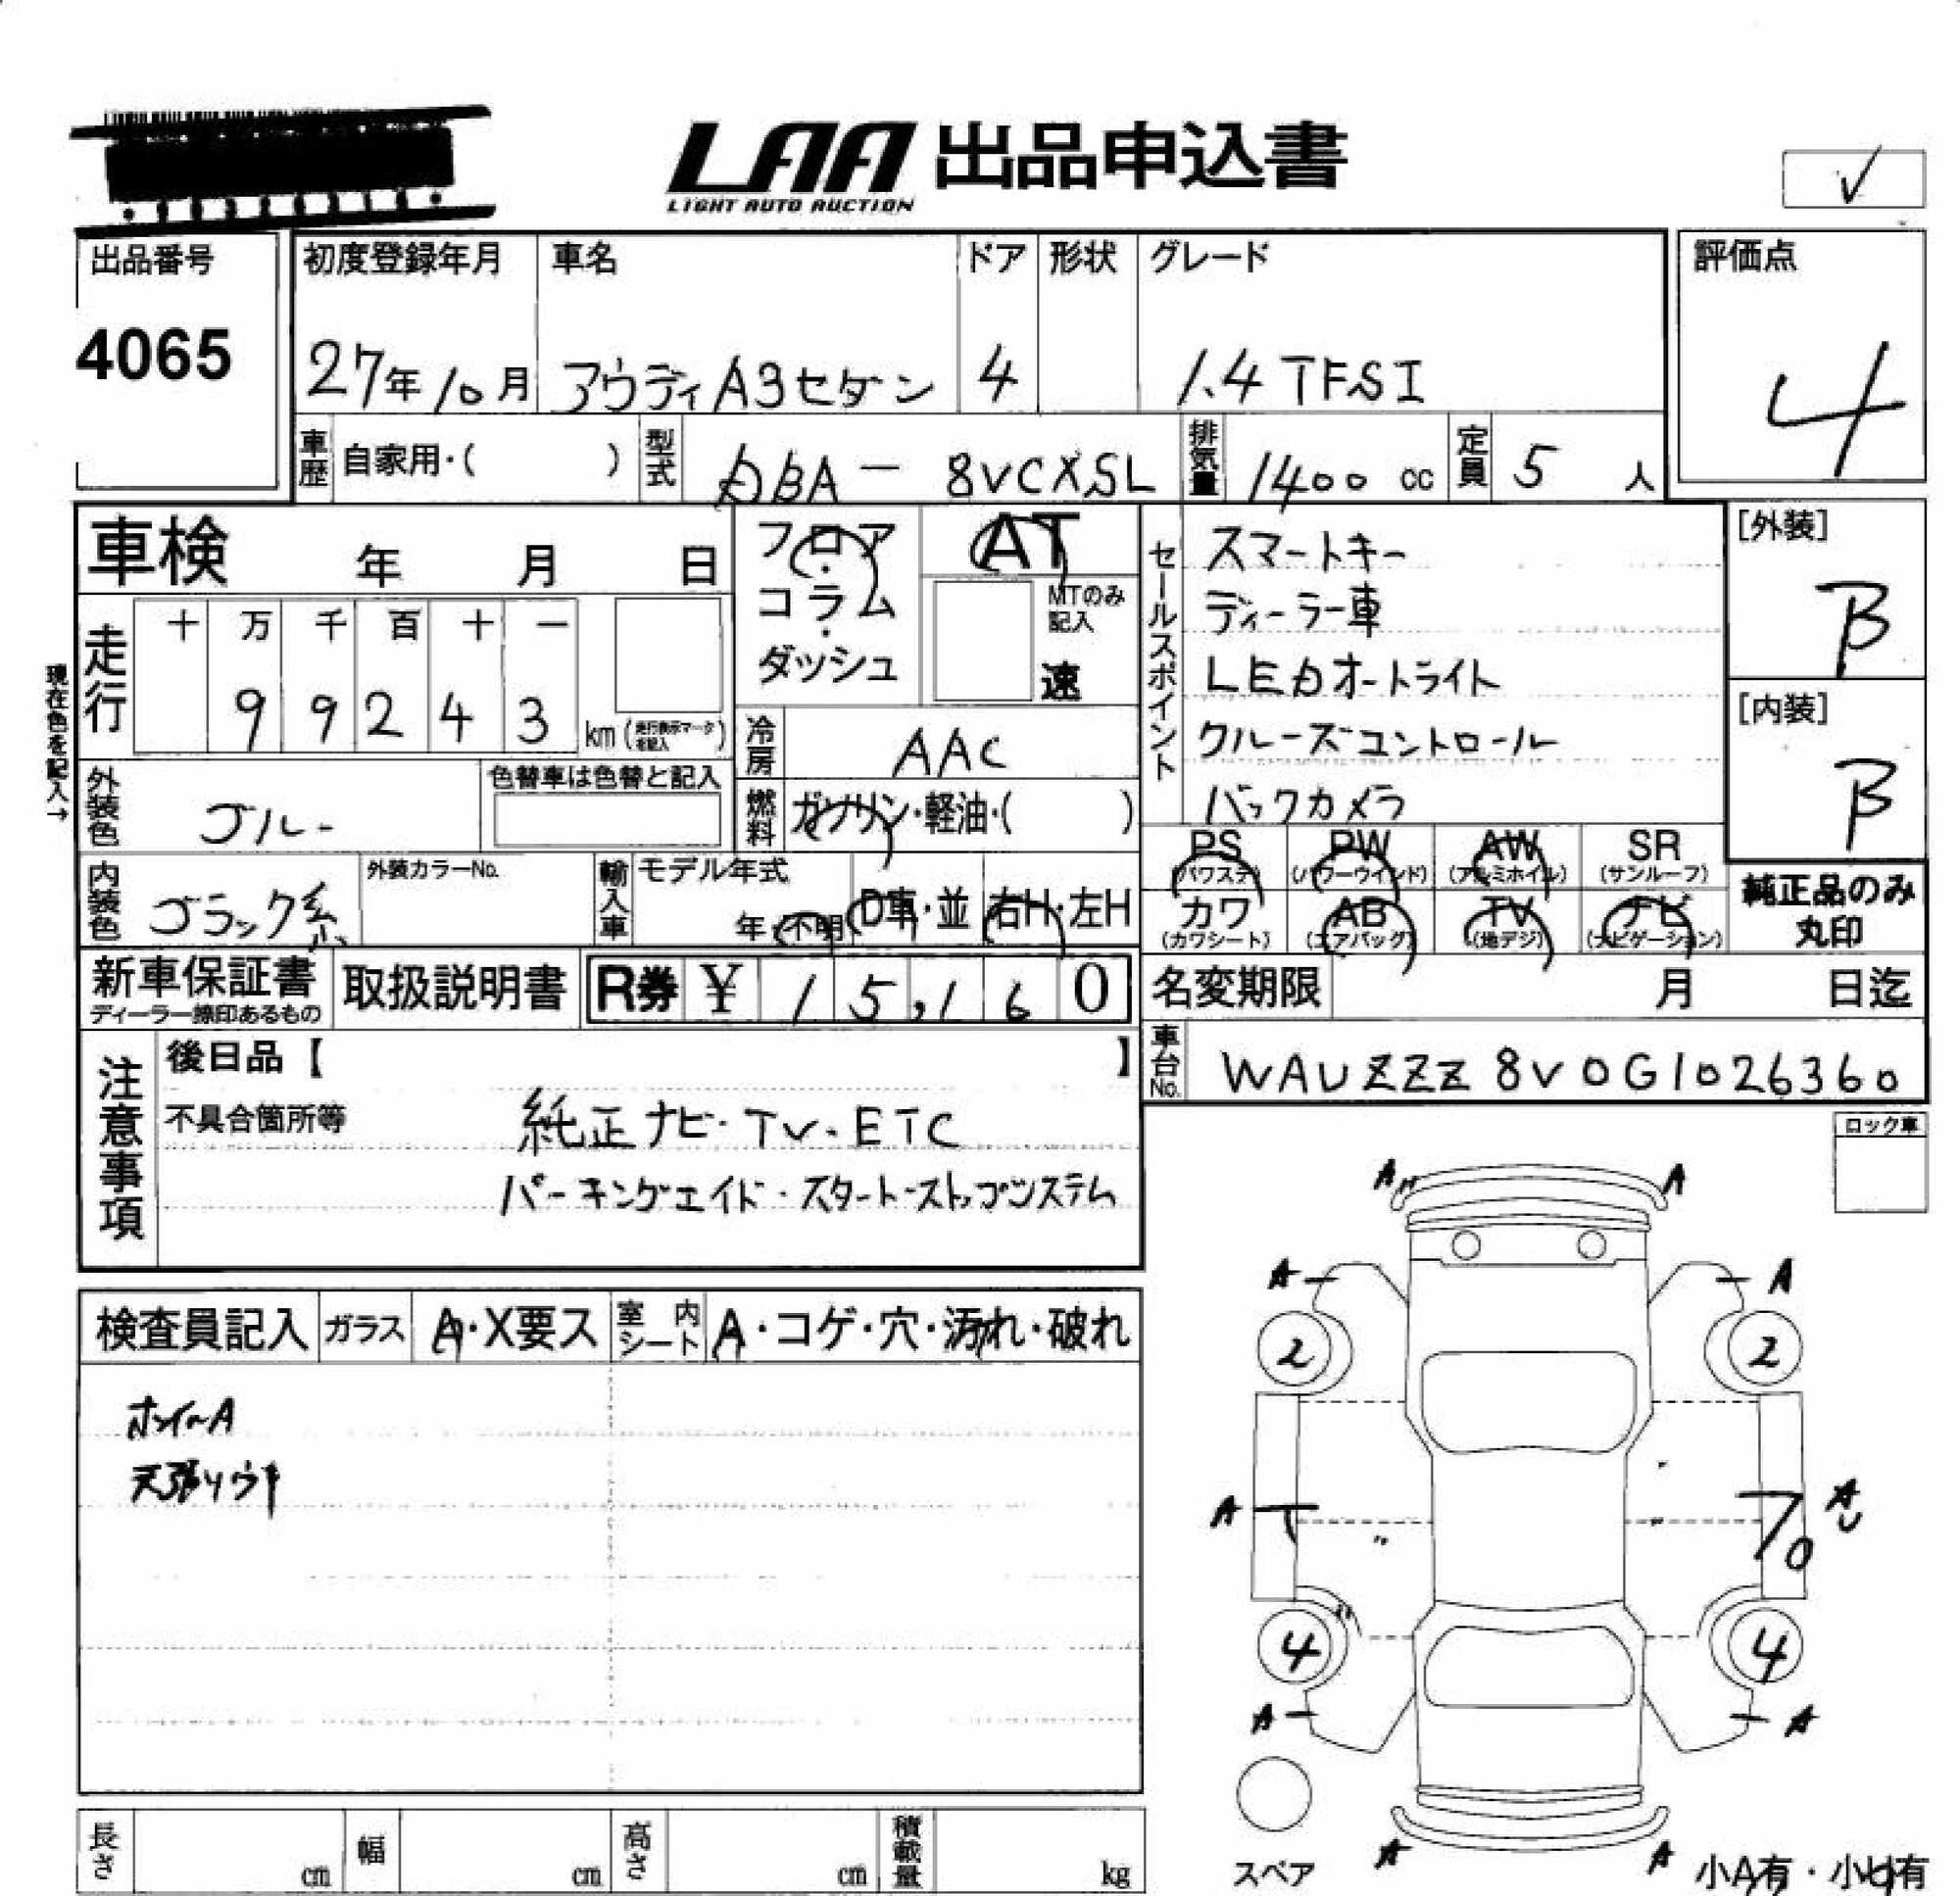 LAA 出品申込書
LIGHT AUTO AUCTION
✓
出品番号
4065
初度登録年月
27年10月
車名
アウディA3セダン
ドア
4
形状
グレード
1.4 TFSI
評価点
4
車歴 自家用・( )
型式 DBA-8VCXSL
排気量 1400 cc
定員 5 人
車検 年 月 日
フロア・コラム・ダッシュ
AT
MTのみ記入
速
セールスポイント
スマートキー
ディーラー車
LEDオートライト
クルーズコントロール
バックカメラ
[外装]
B
[内装]
B
現在色を記入→
走行
十 万 千 百 十 一
9 9 2 4 3
km (走行表示マークを記入)
冷房 AAC
外装色 ブルー
色替車は色替と記入
燃料 ガソリン・軽油・( )
内装色 ブラック系
外装カラーNo.
輸入車
モデル年式
年・不明
D車・並
右H・左H
PS (パワステ)
PW (パワーウインド)
AW (アルミホイル)
SR (サンルーフ)
カワ (カワシート)
AB (エアバッグ)
TV (地デジ)
ナビ (ナビゲーション)
純正品のみ
丸印
新車保証書
ディーラー捺印あるもの
取扱説明書
R券 ¥ 15,160
名変期限 月 日迄
車台No. WAUZZZ8V0G1026360
注意事項
後日品【 】
不具合箇所等
純正ナビ・TV・ETC
パーキングエイド・スタートストップシステム
ロック車
検査員記入
ガラス A・X要ス
室内シート A・コゲ・穴・汚れ・破れ
ホイールA
天張リウキ
A〃 A
A A
2 2
A 〃 〃 AU
〃
4 4
A A
A A
スペア
小A有・小U有
長さ cm
幅 cm
高さ cm
積載量 kg